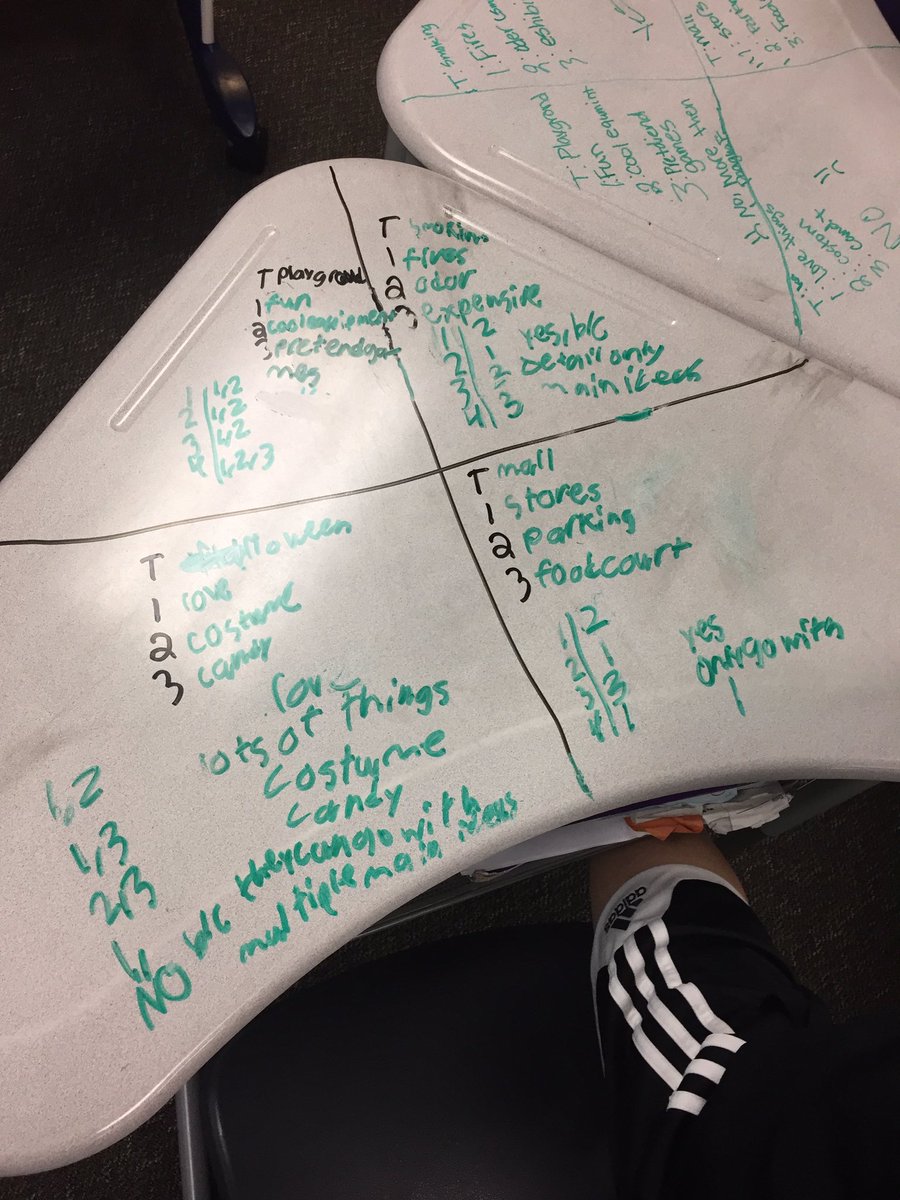 T playground
1 fun
2 cool equipment
3 pretend ga
mes
1 1,2
2 1,2
3 1,2
4 1,2,3
T smoking
1 fires
2 odor
3 expensive
1 2
2 1
3 2
4 3
yes, b/c
detail only
main
T Halloween
1 love
2 costume
3 candy
love
lots of things
costume
candy
1,2
1,3
2,3
1,
NO b/c they can go with
multiple main ideas
T mall
1 stores
2 parking
3 foodcourt
1 2
2 1
3 3
4 1
yes
only go with
1
adidas
T: smoking
1: Fires
2: oder
3:
T: mall
1: stors
2:
3: Food
T: Playgrond
1: fun
2: cool equmint
3: Pretend
games
4, No, More then
T:
1 Love things
2 costom
3 candy
NO